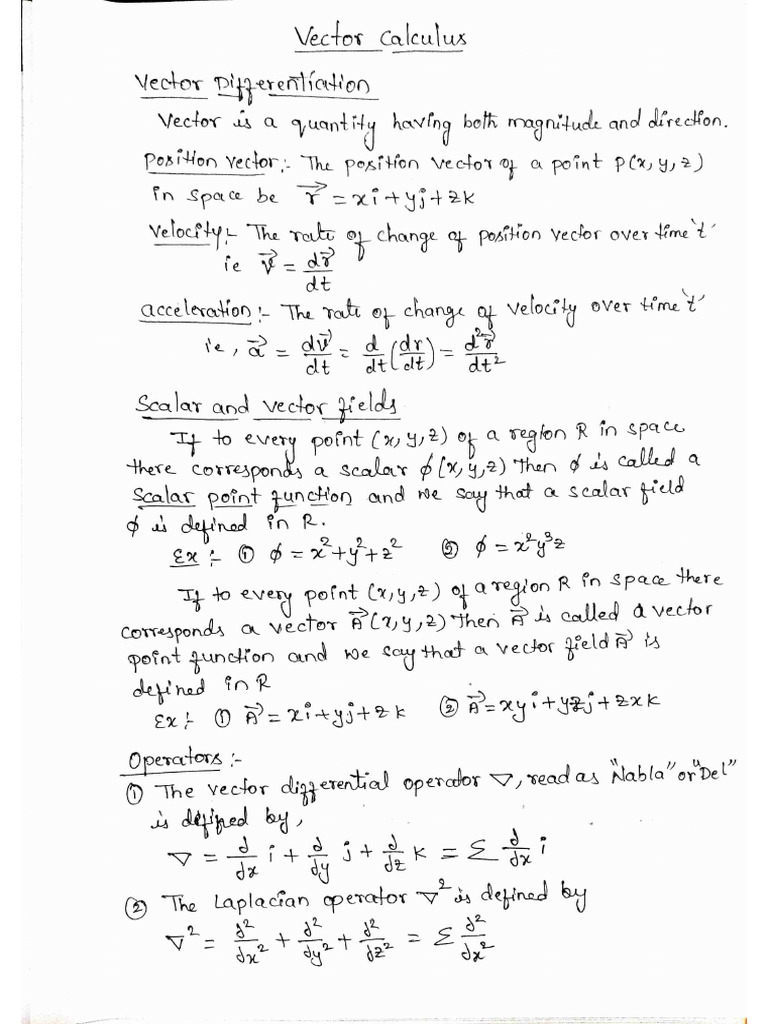 Vector Calculus
Vector Differentiation
Vector is a quantity having both magnitude and direction.
Position vector:- The position vector of a point P(x,y,z)
in space be r⃗ = xi+yj+zk
Velocity:- The rate of change of position vector over time 't'
ie v⃗ = dr⃗/dt
acceleration:- The rate of change of velocity over time 't'
ie, a⃗ = dv⃗/dt = d/dt (dr/dt) = d²r⃗/dt²
Scalar and vector fields
If to every point (x,y,z) of a region R in space
there corresponds a scalar ϕ(x,y,z) Then ϕ is called a
Scalar point function and we say that a scalar field
ϕ is defined in R.
Ex:- ① ϕ = x²+y²+z² ② ϕ = x²y³z
If to every point (x,y,z) of a region R in space there
corresponds a vector A⃗(x,y,z) then A⃗ is called a vector
point function and we say that a vector field A⃗ is
defined in R
Ex:- ① A⃗ = xi+yj+zk ② A⃗ = xyi+yzj+zxk
Operators:-
① The vector differential operator ∇, read as "Nabla" or "Del"
is defined by,
∇ = ∂/∂x i + ∂/∂y j + ∂/∂z k = Σ ∂/∂x i
② The Laplacian operator ∇² is defined by
∇² = ∂²/∂x² + ∂²/∂y² + ∂²/∂z² = Σ ∂²/∂x²